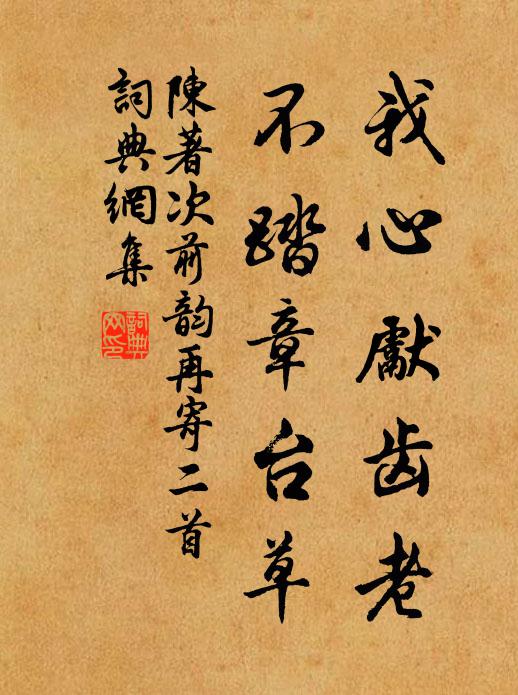 我心獻齿老
不踏章台草
陳著次前韵再寄二首
詞典網集
詞典网印